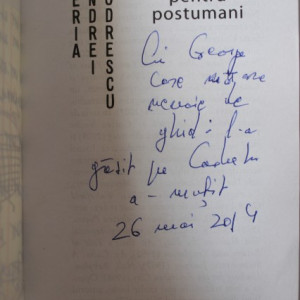 ERIA
NDREI
ODRESCU
pentru
postumani
Lui George
care nu are
nevoie de
ghid: l-a
găsit pe Codrescu
a-nuțit
26 mai 2014